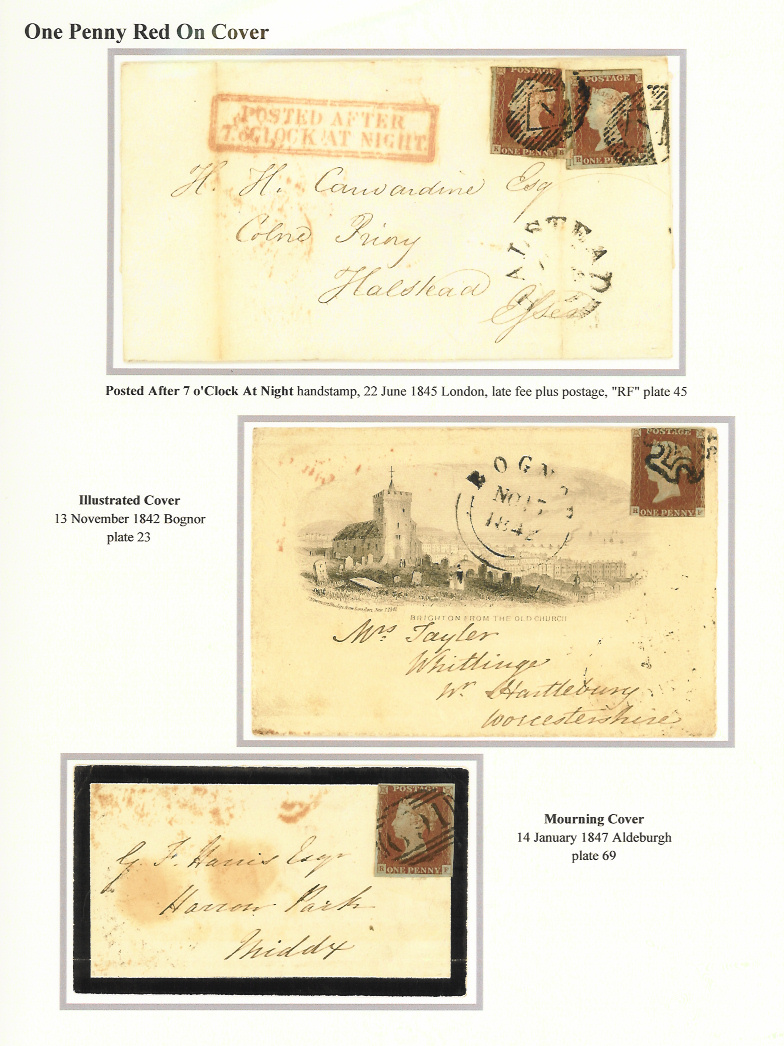 One Penny Red On Cover
POSTED AFTER
7 o'CLOCK AT NIGHT.
POSTAGE
ONE PENNY
POSTAGE
ONE PENNY
H. H. Carwardine Esq
Colne Priory
Halstead
Essex
HALSTEAD
Posted After 7 o'Clock At Night handstamp, 22 June 1845 London, late fee plus postage, "RF" plate 45
Illustrated Cover
13 November 1842 Bognor
plate 23
BOGNOR
NO 13
1842
POSTAGE
ONE PENNY
BRIGHTON FROM THE OLD CHURCH
Mrs Tayler
Whittinge
Nr Hartlebury
Worcestershire
POSTAGE
ONE PENNY
G. F. Harris Esqr
Harrow Park
Middx
Mourning Cover
14 January 1847 Aldeburgh
plate 69